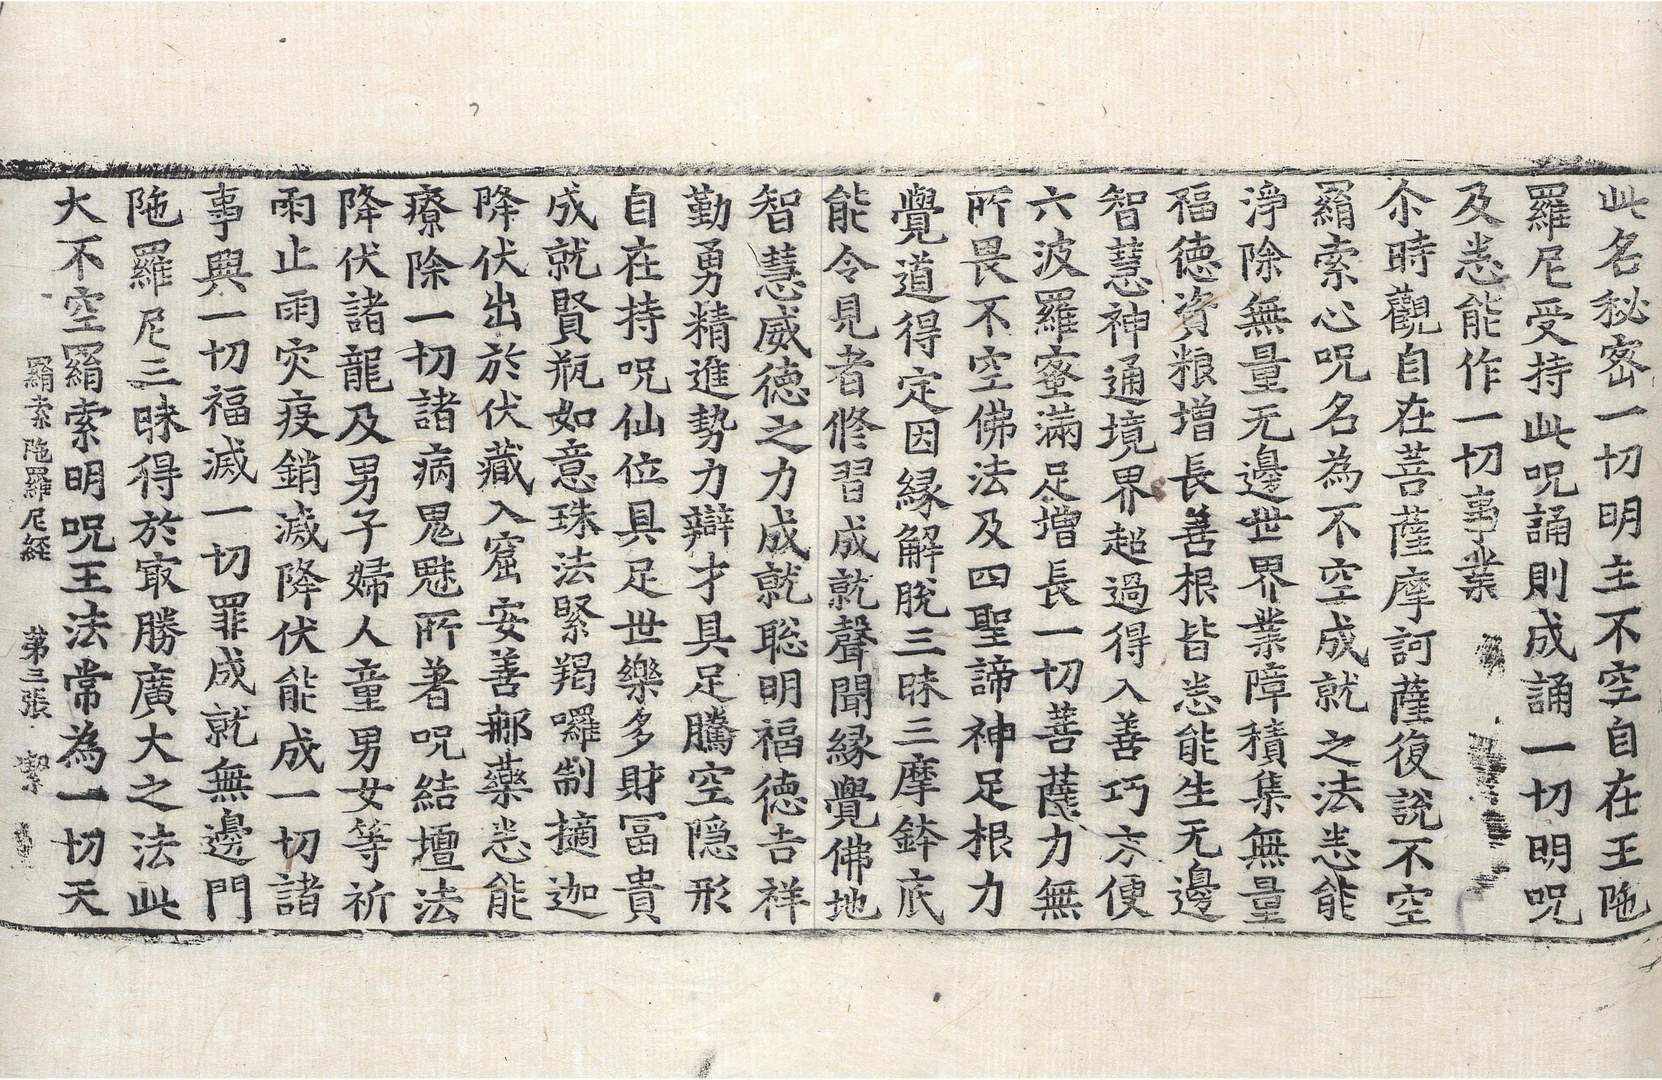 此名秘宻一切明主不空自在王陁
羅尼受持此呪誦則成誦一切明呪
及悉能作一切事業
尒時觀自在菩薩摩訶薩復說不空
羂索心呪名為不空成就之法悉能
淨除無量无邊世界業障積集無量
福德資粮增長善根皆悉能生无邊
智慧神通境界超過得入善巧方便
六波羅蜜滿足增長一切菩薩力無
所畏不空佛法及四聖諦神足根力
覺道得定因緣解脫三昧三摩鉢底
能令見者修習成就聲聞緣覺佛地
智慧威德之力成就聡明福德吉祥
勤勇精進勢力辯才具足騰空隐形
自在持呪仙位具足世樂多財冨貴
成就賢瓶如意珠法緊羯囉制擿迦
降伏出於伏藏入窟安善那藥悉能
療除一切諸病鬼魅所著呪結壇法
降伏諸龍及男子婦人童男女等祈
雨止雨灾疫銷滅降伏能成一切諸
事興一切福滅一切罪成就無邊門
陁羅尼三昧得於㝡勝廣大之法此
大不空羂索明呪王法常為一切天
羂索陁羅尼経 苐三張 潔